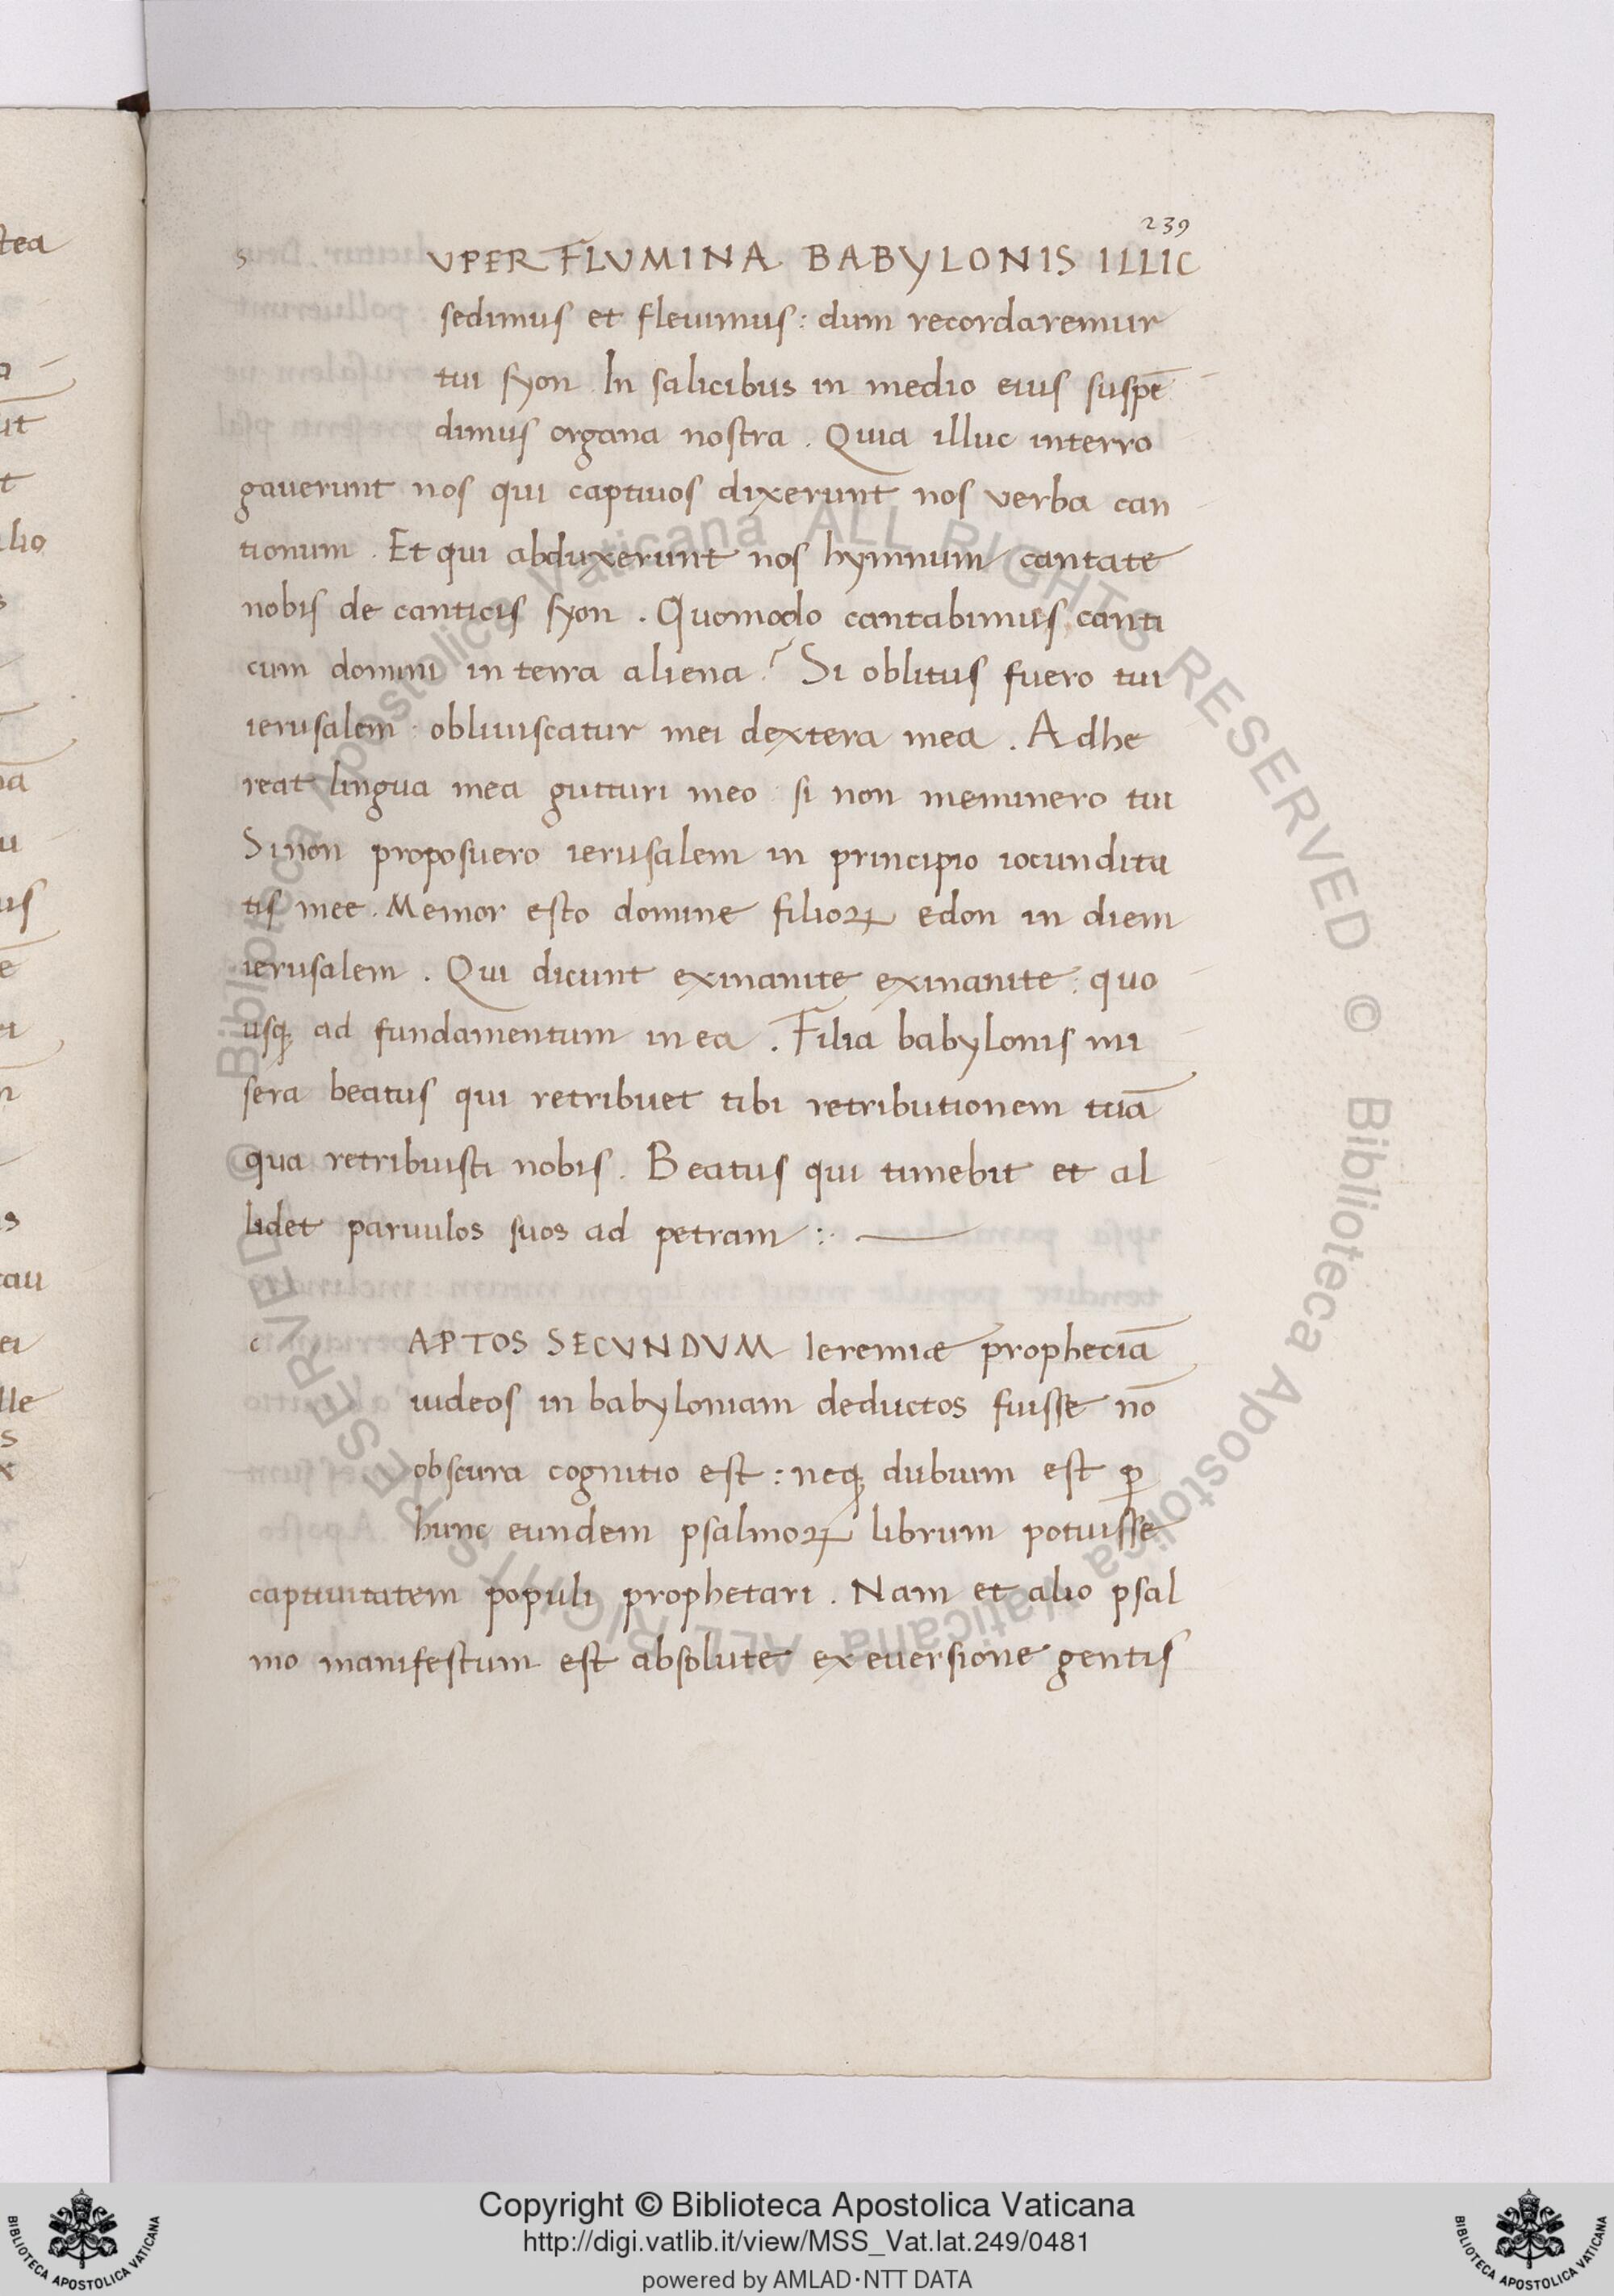 239
s UPER FLUMINA BABYLONIS ILLIC
sedimus et fleuimus: dum recordaremur
tui syon In salicibus in medio eius suspē
dimus organa nostra . Quia illuc interro
gauerunt nos qui captiuos dixerunt nos verba can
tionum . Et qui abduxerunt nos hymnum cantate
nobis de canticis syon . Quomodo cantabimus canti
cum domini in terra aliena? Si oblitus fuero tui
ierusalem · obliuiscatur mei dextera mea . Adhe
reat lingua mea gutturi meo · si non meminero tui
Si non proposuero ierusalem in principio iocundita
tis mee . Memor esto domine filioꝝ edon in diem
ierusalem . Qui dicunt exinanite exinanite : quo
usqꝫ ad fundamentum in ea . Filia babylonis mi
sera beatus qui retribuet tibi retributionem tuā
qua retribuisti nobis . Beatus qui tinebit et al
lidet paruulos suos ad petram :·
c APTOS SECUNDUM Ieremiæ propheciā
iudeos in babyloniam deductos fuisse nō
obscura cognitio est : neqꝫ dubium est ꝑ
hunc eundem psalmoꝝ librum potuisse
captiuitatem populi prophetari . Nam et alio psal
mo manifestum est absolute ex euersione gentis
Copyright © Biblioteca Apostolica Vaticana
http://digi.vatlib.it/view/MSS_Vat.lat.249/0481
powered by AMLAD·NTT DATA
BIBLIOTECA APOSTOLICA VATICANA
BIBLIOTECA APOSTOLICA VATICANA
© Biblioteca Apostolica Vaticana ALL RIGHTS RESERVED © Biblioteca Apostolica Vaticana ALL RIGHTS RESERVED